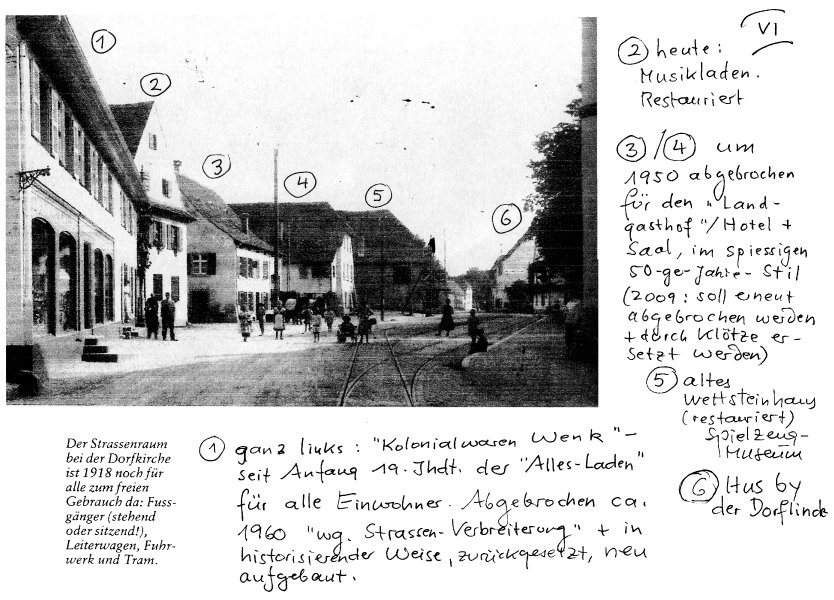 1
2
3
4
5
6
VI
2 heute:
Musikladen.
Restauriert
3/4 um
1950 abgebrochen
für den "Land-
gasthof"/Hotel +
Saal, im spiessigen
50-ger Jahre-Stil
(2009: soll erneut
abgebrochen werden
+ durch Klötze er-
setzt werden)
5 altes
Wettsteinhaus
(restauriert)
Spielzeug-
Museum
6 Hus by
der Dorflinde
Der Strassenraum
bei der Dorfkirche
ist 1918 noch für
alle zum freien
Gebrauch da: Fuss-
gänger (stehend
oder sitzend!),
Leiterwagen, Fuhr-
werk und Tram.
1 ganz links: "Kolonialwaren Wenk"-
seit Anfang 19. Jhdt. der "Alles-Laden"
für alle Einwohner. Abgebrochen ca.
1960 "wg. Strassen-Verbreiterung" + in
historisierender Weise, zurückgesetzt, neu
aufgebaut.